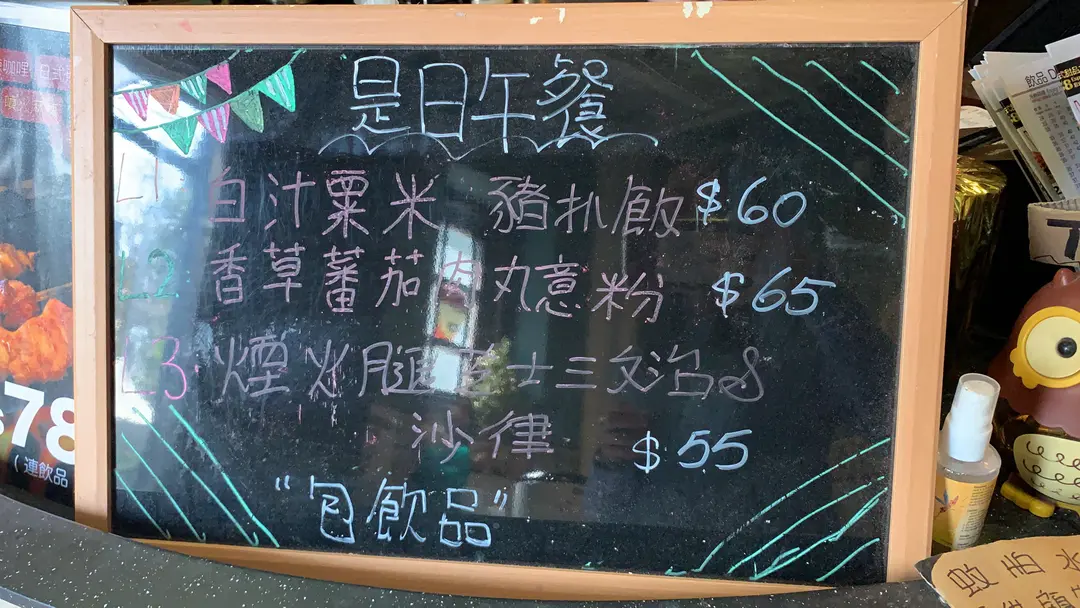 是日午餐
L1 白汁粟米 豬扒飯 $60
L2 香草蕃茄肉丸意粉 $65
L3 煙火腿芝士三文治&
沙律 $55
"包飲品"
78
(連飲品
飲品
蚊怕水